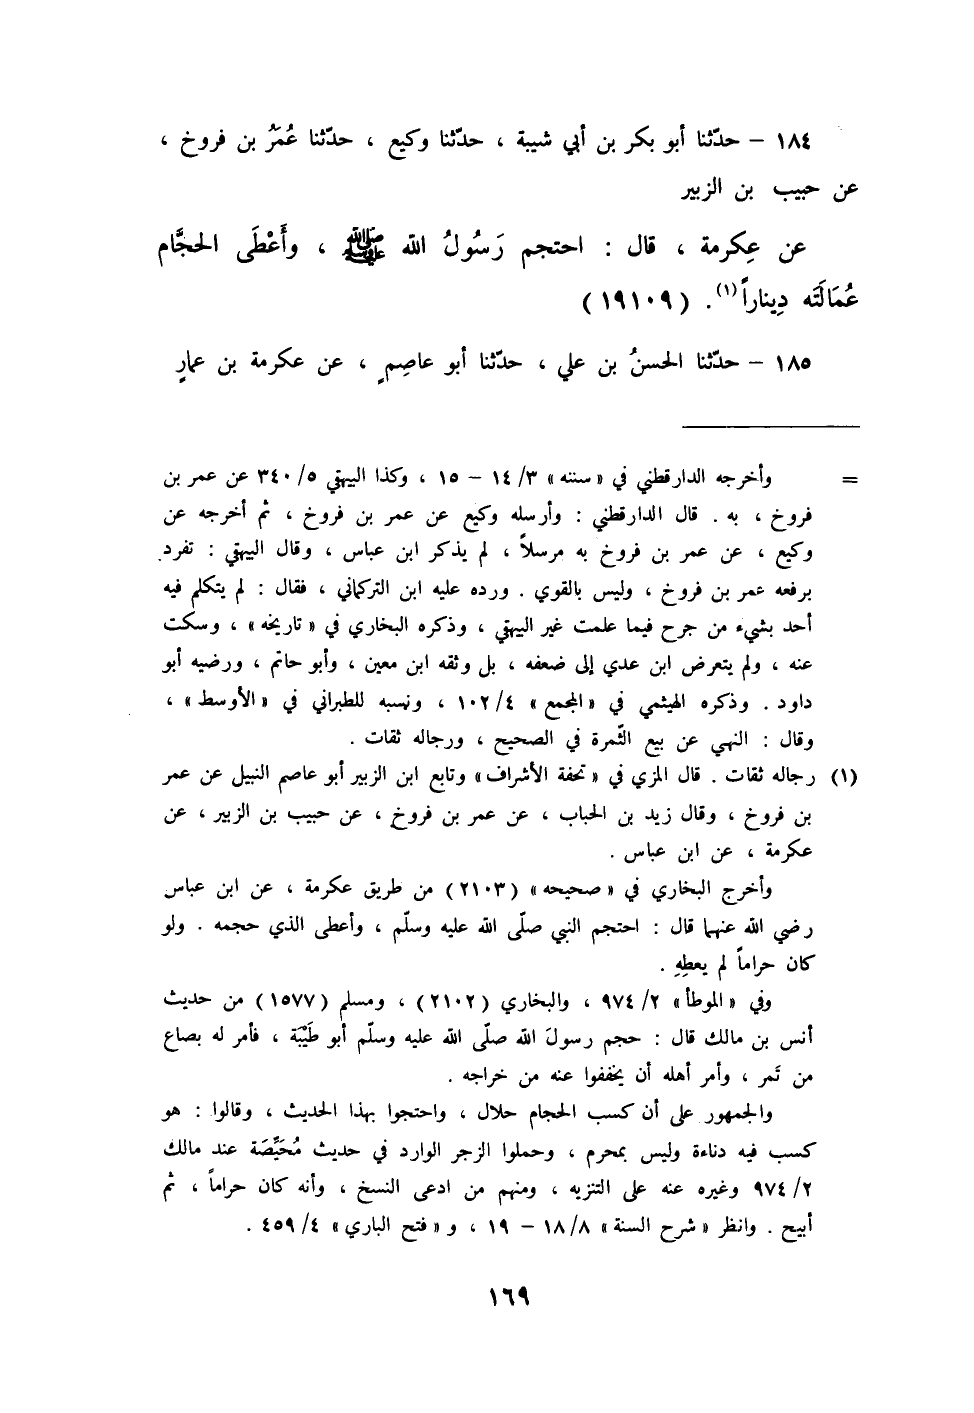 ١٨٤ – حدّثنا أبو بكر بن أبي شيبة ، حدّثنا وكيع ، حدّثنا عُمَرُ بن فروخ ،
عن حبيب بن الزبير
عن عِكرمة ، قال : احتجم رَسُولُ الله ﷺ ، وأَعْطَى الحجَّام
عُمَالَتَه دِيناراً(١). (١٩١٠٩)
١٨٥ – حدّثنا الحسنُ بن علي ، حدّثنا أبو عاصِمٍ ، عن عكرمة بن عمارٍ
= وأخرجه الدارقطني في «سننه» ١٤/٣ – ١٥ ، وكذا البيهقي ٣٤٠/٥ عن عمر بن
فروخ ، به . قال الدارقطني : وأرسله وكيع عن عمر بن فروخ ، ثم أخرجه عن
وكيع ، عن عمر بن فروخ به مرسلاً ، لم يذكر ابن عباس ، وقال البيهقي : تفرد
برفعه عمر بن فروخ ، وليس بالقوي . ورده عليه ابن التركماني ، فقال : لم يتكلم فيه
أحد بشيء من جرح فيما علمت غير البيهقي ، وذكره البخاري في «تاريخه» ، وسكت
عنه ، ولم يتعرض ابن عدي إلى ضعفه ، بل وثقه ابن معين ، وأبو حاتم ، ورضيه أبو
داود . وذكره الهيثمي في «المجمع» ١٠٢/٤ ، ونسبه للطبراني في «الأوسط» ،
وقال : النهي عن بيع الثّمرة في الصحيح ، ورجاله ثقات .
(١) رجاله ثقات . قال المزي في «تحفة الأشراف» وتابع ابن الزبير أبو عاصم النبيل عن عمر
بن فروخ ، وقال زيد بن الحباب ، عن عمر بن فروخ ، عن حبيب بن الزبير ، عن
عكرمة ، عن ابن عباس .
وأخرج البخاري في «صحيحه» (٢١٠٣) من طريق عكرمة ، عن ابن عباس
رضي الله عنهما قال : احتجم النبي صلّى الله عليه وسلّم ، وأعطى الذي حجمه . ولو
كان حراماً لم يعطِهِ .
وفي «الموطأ» ٩٧٤/٢ ، والبخاري (٢١٠٢) ، ومسلم (١٥٧٧) من حديث
أنس بن مالك قال : حجم رسولَ الله صلّى الله عليه وسلّم أبو طَيْبَة ، فأمر له بصاع
من تَمر ، وأمر أهله أن يخففوا عنه من خراجه .
والجمهور على أن كسب الحجام حلال ، واحتجوا بهذا الحديث ، وقالوا : هو
كسب فيه دناءة وليس بمحرم ، وحملوا الزجر الوارد في حديث مُحَيِّصَة عند مالك
٩٧٤/٢ وغيره عنه على التنزيه ، ومنهم من ادعى النسخ ، وأنه كان حراماً ، ثم
أبيح . وانظر «شرح السنة» ١٨/٨ – ١٩ ، و «فتح الباري» ٤٥٩/٤ .
١٦٩